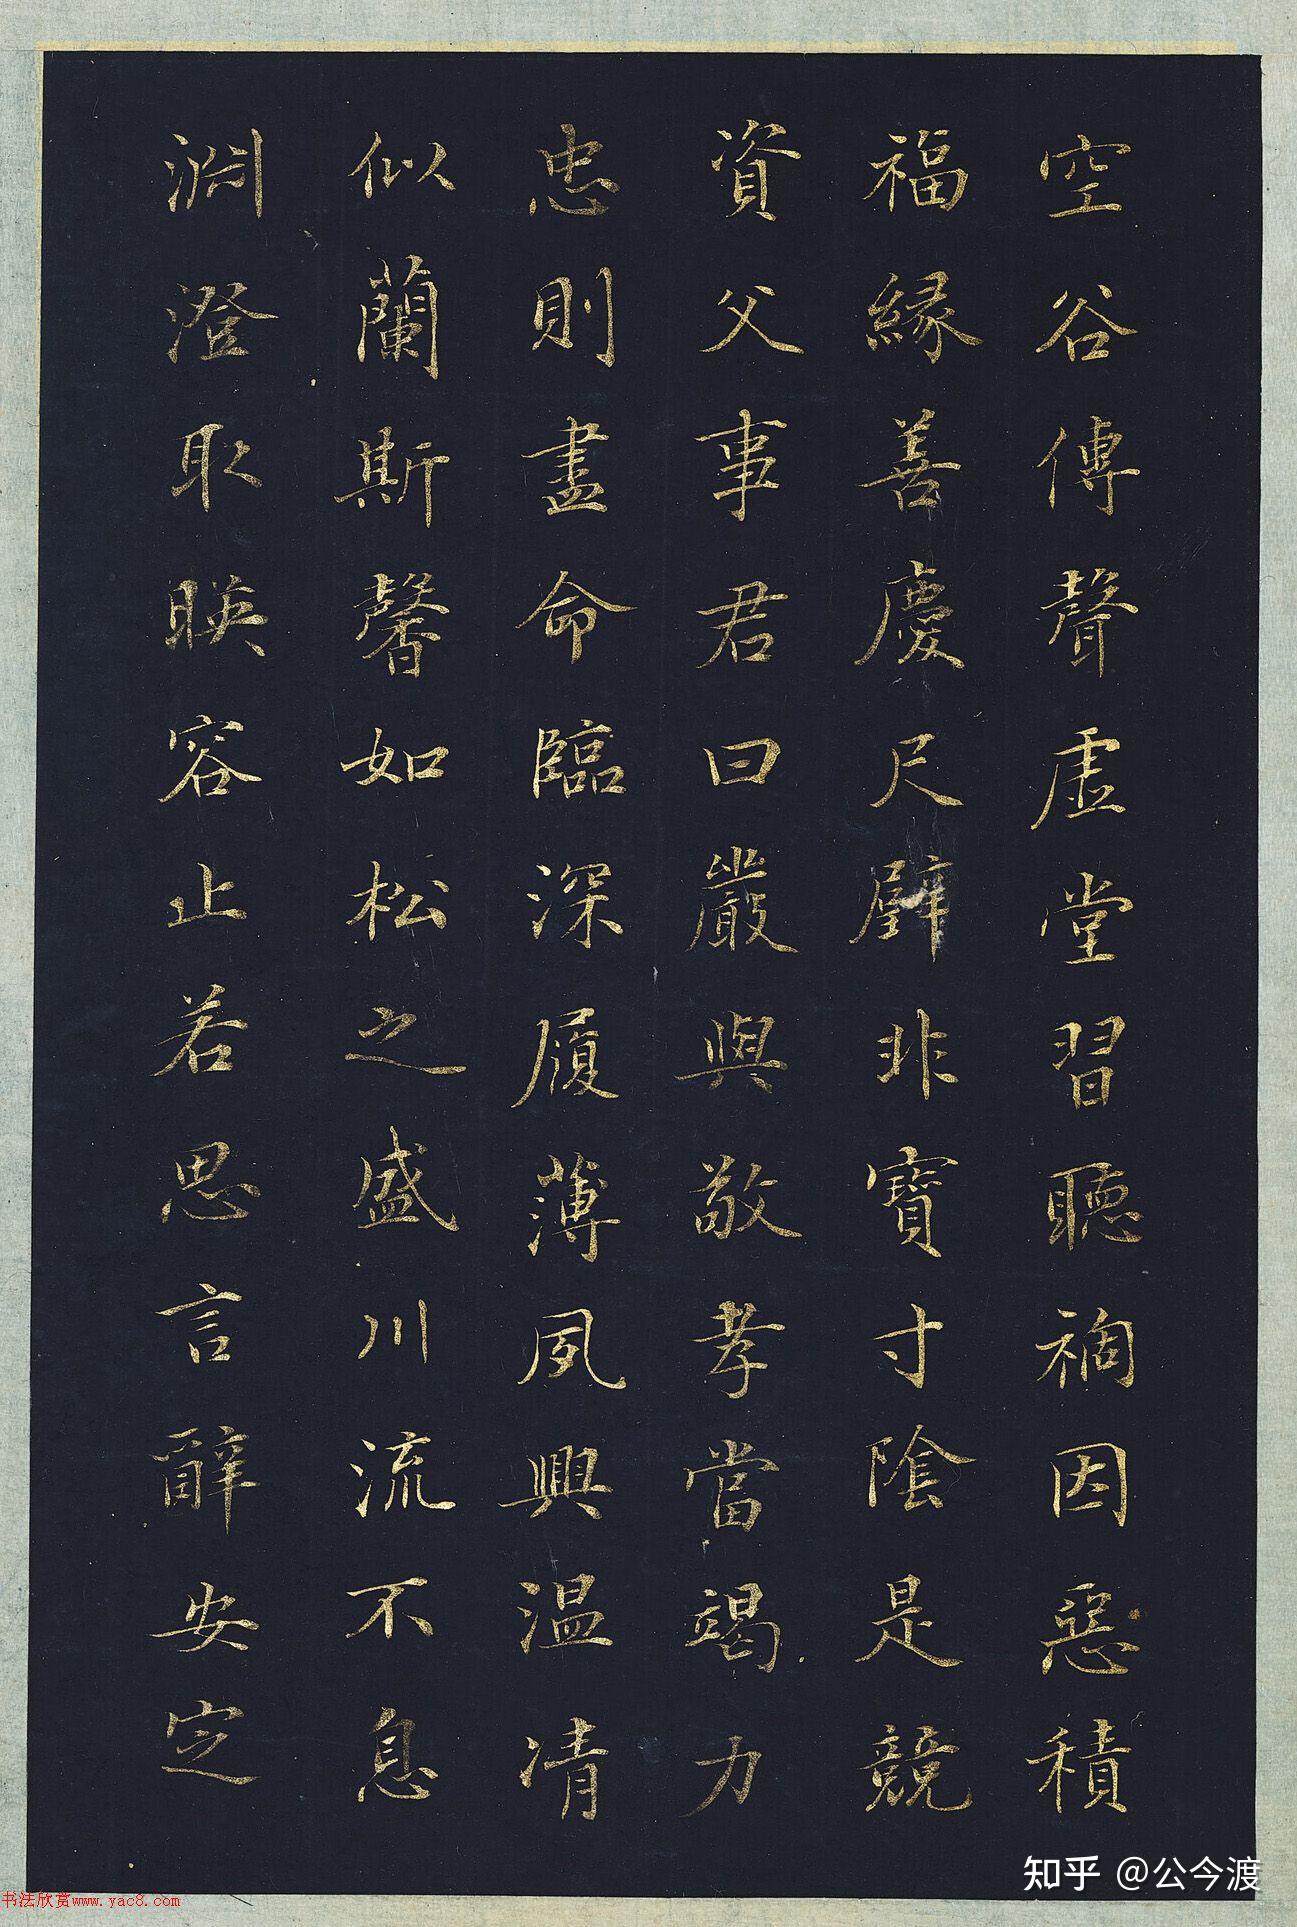 空谷傳聲虛堂習聽禍因惡積
福緣善慶尺璧非寶寸陰是競
資父事君曰嚴與敬孝當竭力
忠則盡命臨深履薄夙興溫凊
似蘭斯馨如松之盛川流不息
淵澄取暎容止若思言辭安定
知乎 @公今渡
书法欣赏www.yac8.com